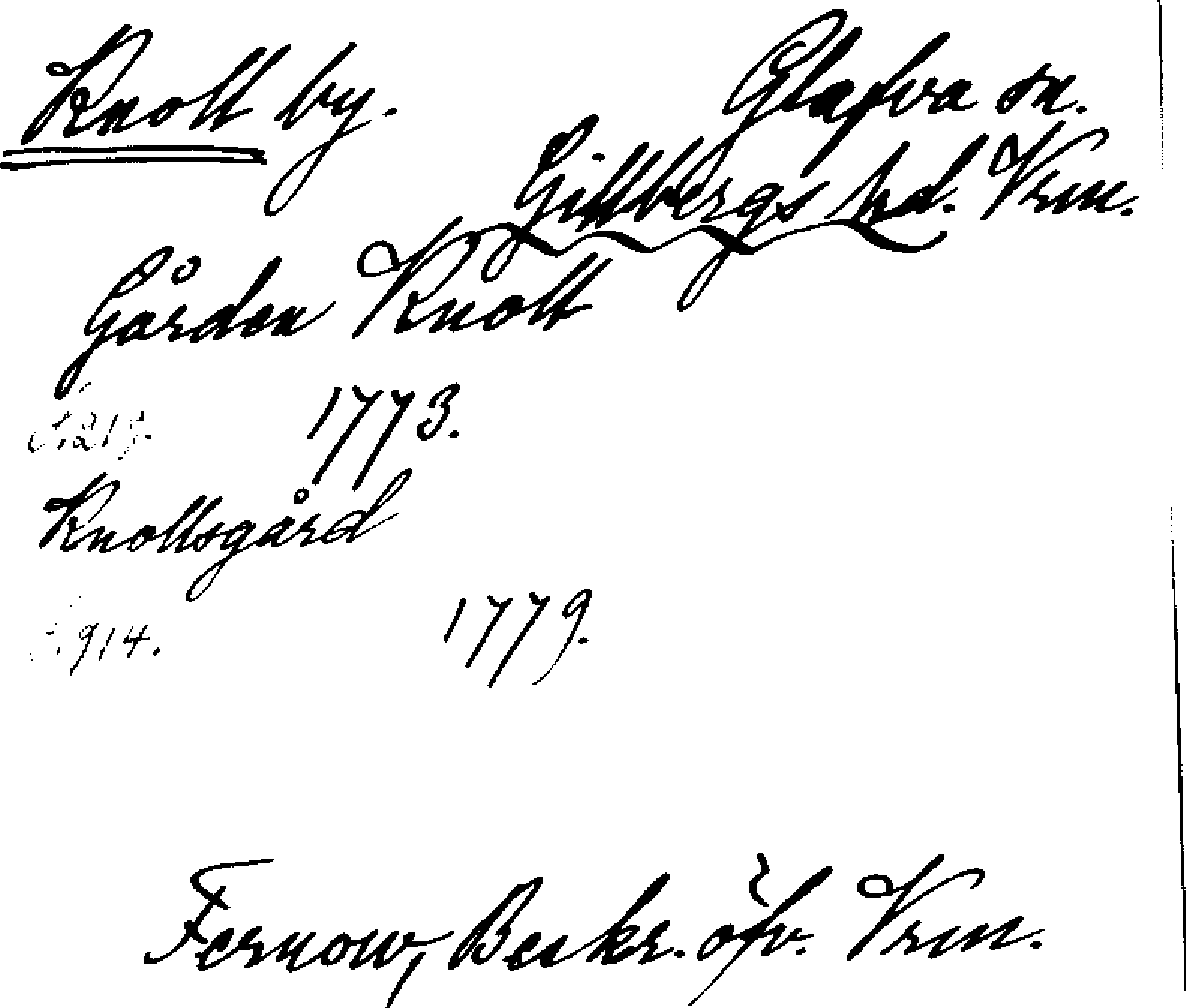 Knoll by. Glafva sn.
Gillbergs hd. Vrm.
Gården Knoll
1773.
Knollsgård
S. 914. 1779.
Fernow, Beskr. öfv. Vrm.